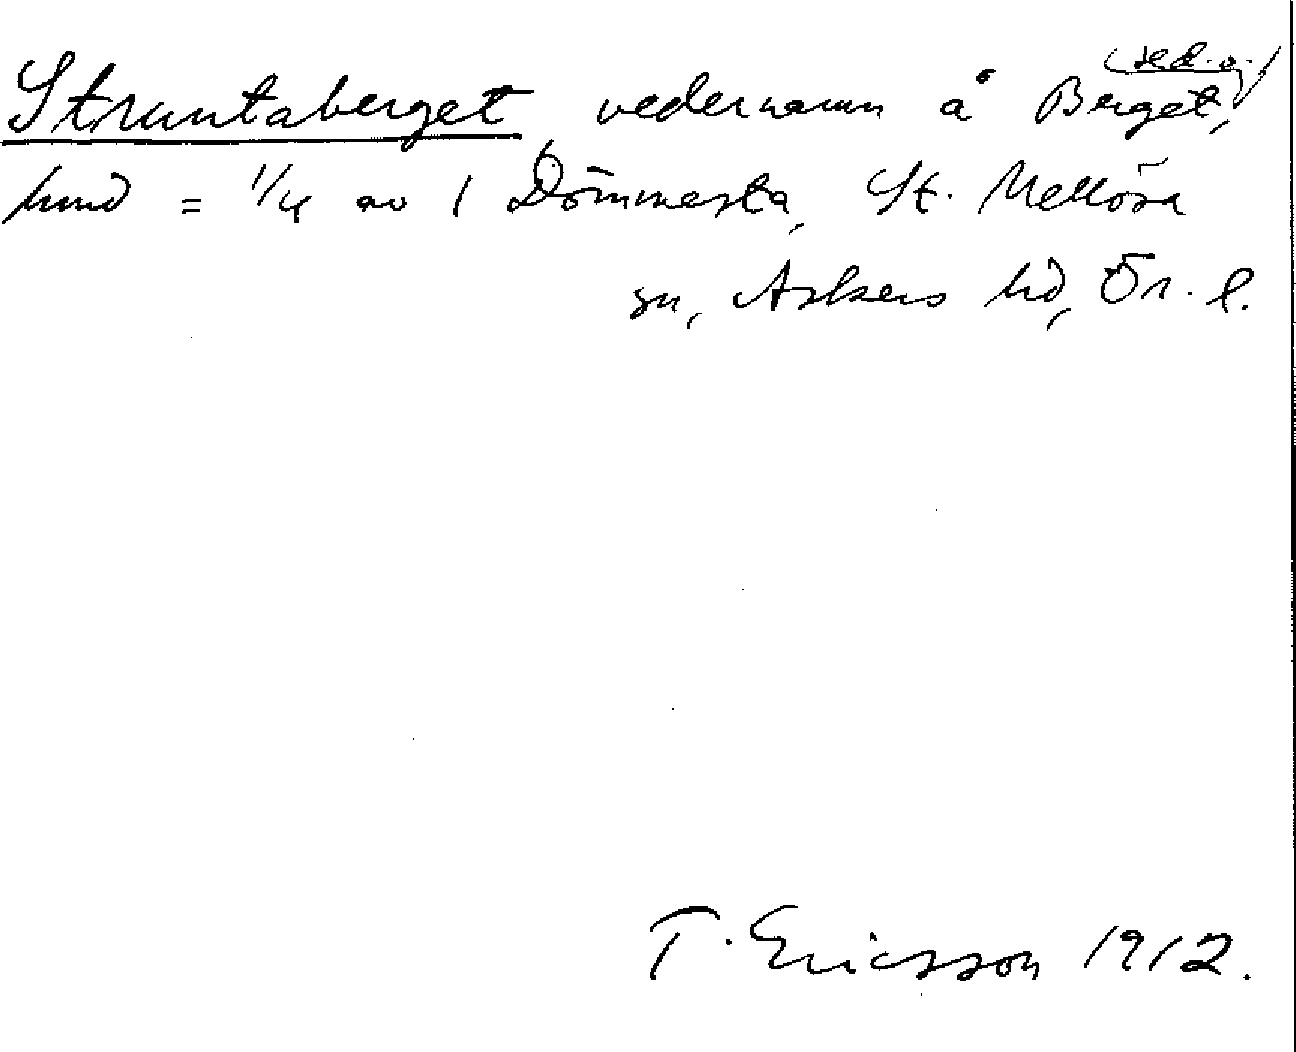 (se d. o.)
Struntaberget, vedernamn å Berget,
hmd = 1/4 av 1 Dömmesta, St. Mellösa
sn, Askers hd, Ör. l.
T. Ericsson 1912.